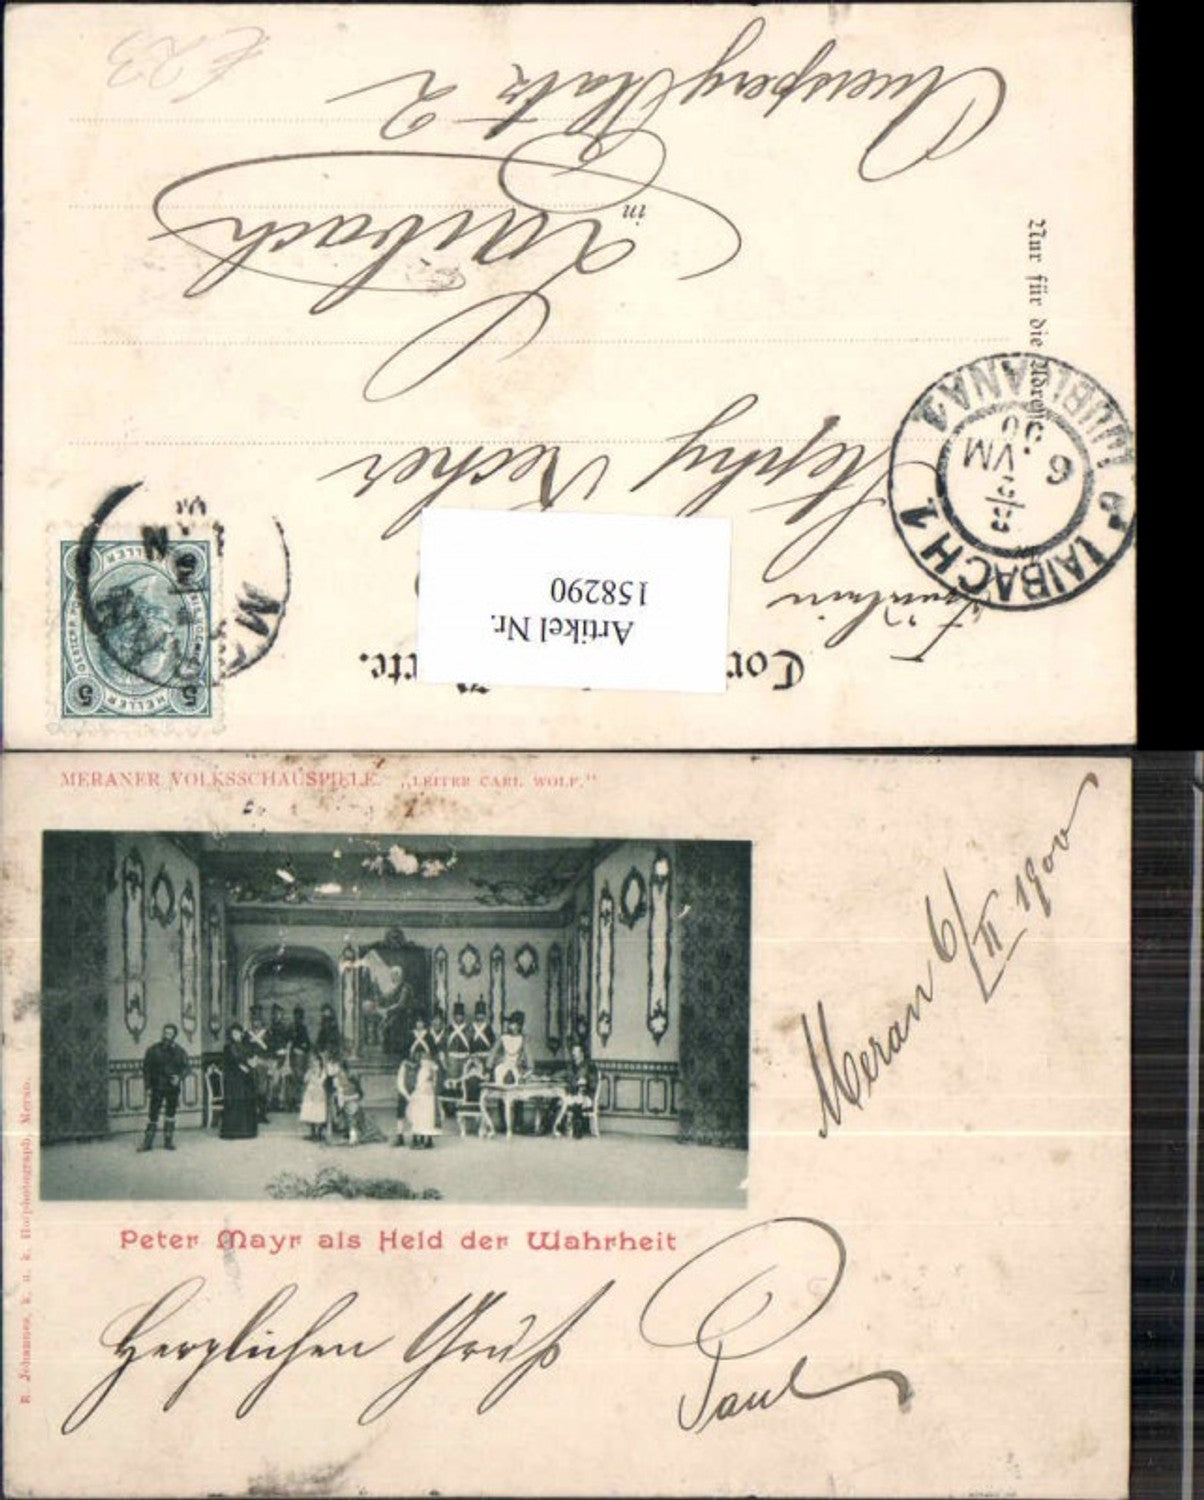 Cor rte.
Artikel Nr.
158290
Fräulein
Stephy Recher
in
Laibach
Auersperg Platz 2
Nur für die Adresse.
LAIBACH 1
LJUBLJANA 1
6
VM
5 HELLER 5
€23
MERANER VOLKSSCHAUSPIELE. „LEITER CARL WOLF."
Meran 6/II 1900
Peter Mayr als Held der Wahrheit
Herzlichen Gruß
Paul
B. Johannes, k. u. k. Hofphotograph, Meran.